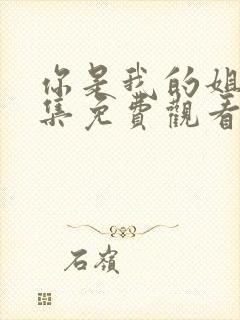 你是我的姐
集免費觀看
石嶺